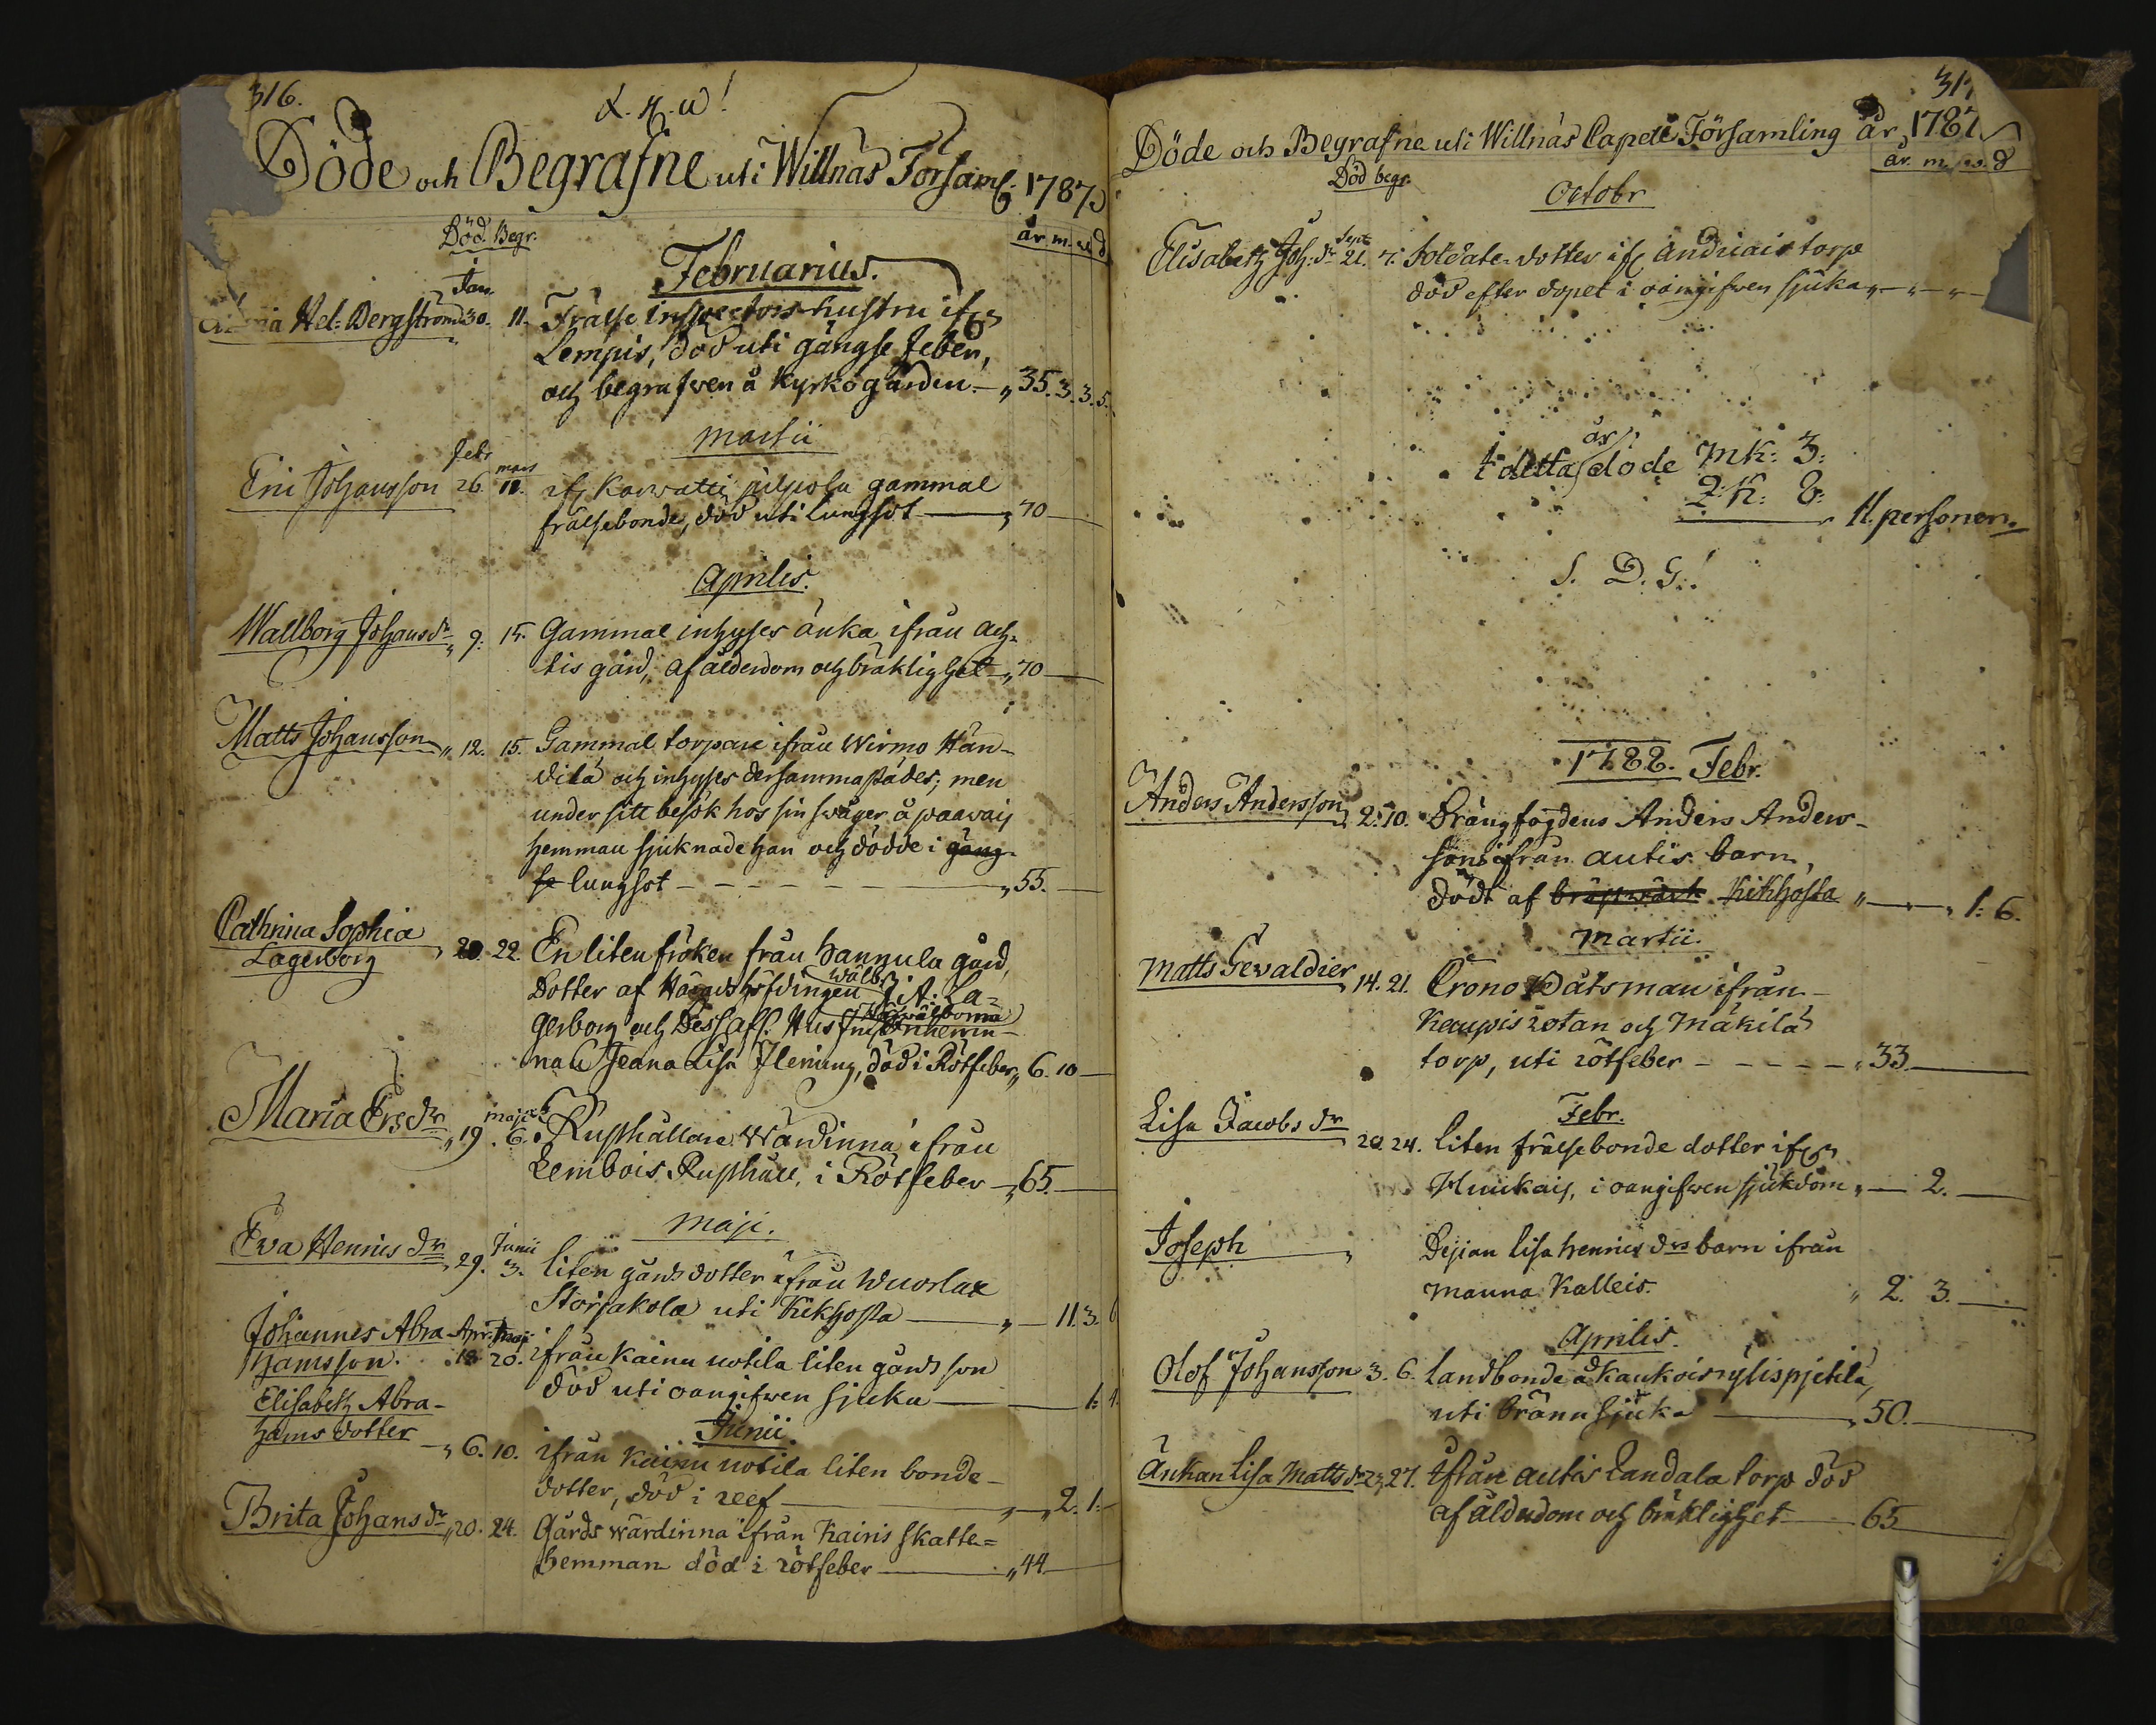 316.
Döde och Begrafne uti Willnäs Församl. 1787.
Död. Begr.
år m. v. d
Februarius.
Jan.
Hel: Bergström 30. 11. Frälse inspectors hustru ifr
Lempis, död uti gångse feber,
och begrafwen å kyrkogården. „ 35. 3. 3. 5.
Martii
Febr mars
Eric Johansson 26. 11. ifr Karwatti gammal
frälsebonde, död uti lungsot „ 70
Aprilis.
Wallborg Johans dr „ 9. 15. Gammal inhyses änka ifrån Auh-
tis gård, af ålderdom och bräklighet „ 70
Matts Johansson „ 12. 15. Gammal torpare ifrån Wirmo Hän-
dilä och inhyses dersammastädes; men
under sitt besök hos sin swåger å paawais
hemman sjuknade han och dödde i gång-
se lungsot „ 55.
Cathrina Sophia
Lagerborg „ 20. 22. En liten fröken från hannula gård,
wälb.
Dotter af Häradshöfdingen J: A: La-
gerborg och Dess aff. Hus fru Wälborna Friherrin-
nan Jeana Lisa Fleming, död i Rötfeber „ 6. 10
Maria Ers dr „ 19. maji 6. Rusthållare Wärdinna ifrån
Lembois Rusthåll, i Rötfeber „ 65.
Maji.
Junii
Ewa Henrics dr „ 29. 3. liten gårds dotter ifrån Wuorlax
Storjakola uti Kikhosta „ 11. 3.
Johannes Abra- Apr. Maji
hamsson. 18. 20. ifrån Kainu uotila liten gårds son
död uti oangifwen sjuka 1. 4.
Junii.
Elisabeth Abra-
hams dotter „ 6. 10. ifrån Kainu uotila liten bonde-
dotter, död i reef „ „ 2. 1.
Brita Johans dr „ 20. 24. Gårds wärdinna ifrån Kairis skatte-
hemman död i rötfeber „ 44
317
Döde och Begrafne uti Willnäs Capell Församling år 1787.
Död begr.
år. m. v. d
Octobr
Sept
Elisabeth Joh: dr 21. 7. Soldate dotter ifr Anduais torp
död efter dopet i oangifwen sjuka „ „ „
I detta år döde Mk: 3:
Q: K: 8:
11. personer.
S. D. G.!
1788. Febr.
Anders Andersson „ 2. 10. Drängfogdens Anders Anders-
sons ifrån Autis barn,
dödt af Kikhosta „ „ 1. 6.
Martii.
Matts Gewaldier „ 14. 21. Crono Båtsman ifrån
Kaupis rotan och Mäkilä
torp, uti rötfeber „ 33.
Febr.
Lisa Jacobs dr 20. 24. liten frälsebonde dotter ifr
Huukais, i oangifwen sjukdom „ 2.
Joseph „ Pejian Lisa henrics drs barn ifrån
manna Kalleis. „ 2. 3.
Aprilis.
Olof Johansson 3. 6. Landbonde å Kaukois rylispjetilä,
uti brännsjuka „ 50.
Änkan Lisa Matts dr 23. 27. Ifrån Autis Landala torp död
af ålderdom och bräklighet 65